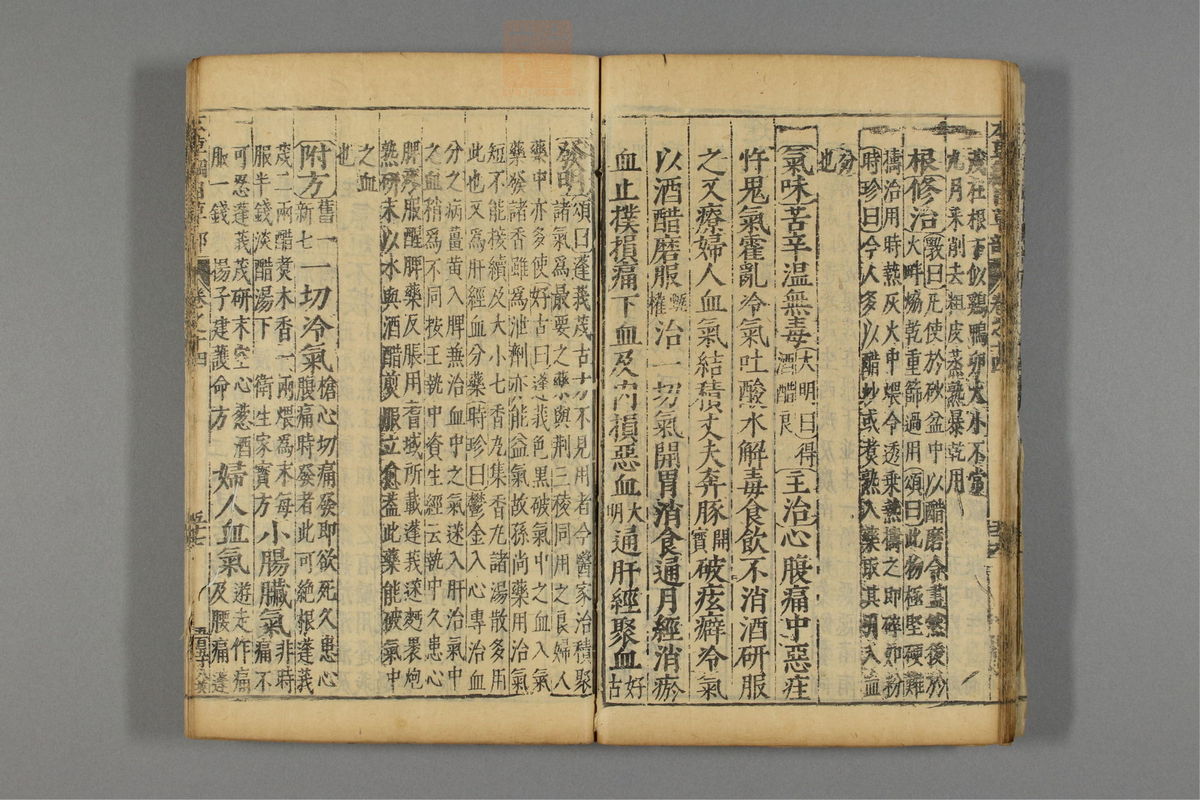 茂在根下似鷄鴨卵大小不常
九月采削去粗皮蒸熟暴乾用
根修治斅曰凡使於砂盆中以醋磨令盡然後於
火畔𤌎乾重篩過用頌曰此物極堅硬難
擣治用時熱灰火中煨令透乘熱擣之即碎如粉
時珍曰今人多以醋炒或煮熟入藥取其引入血
分
也
氣味苦辛温無毒大明曰得酒醋良主治心腹痛中惡疰
忤鬼氣霍亂冷氣吐酸水解毒食飲不消酒研服
之又療婦人血氣結積丈夫奔豚開寶破痃癖冷氣
以酒醋磨服甄權治一切氣開胃消食通月經消瘀
血止撲損痛下血及内損惡血大明通肝經聚血好古
發明頌曰蓬莪茂古方不見用者今醫家治積聚
諸氣爲最要之藥與荆三稜同用之良婦人
藥中亦多使好古曰蓬莪色黑破氣中之血入氣
藥發諸香雖爲泄劑亦能益氣故孫尚藥用治氣
短不能接續及大小七香丸集香丸諸湯散多用
此也又爲肝經血分藥時珍曰鬱金入心專治血
分之病薑黄入脾兼治血中之氣蒁入肝治氣中
之血稍爲不同按王執中資生經云執中久患心
脾疼服醒脾藥反脹用耆域所載蓬莪蒁麪裹炮
熟研末以水與酒醋煎服立愈蓋此藥能破氣中
之血
也
附方舊一新七一切冷氣搶心切痛發即欲死久患心
腹痛時發者此可絶根蓬莪
茂二兩醋煮木香一兩煨爲末每
服半錢淡醋湯下衛生家寶方小腸臟氣非時痛不
可忍蓬莪茂研末空心葱酒
服一錢楊子建護命方婦人血氣遊走作痛及腰痛蓬